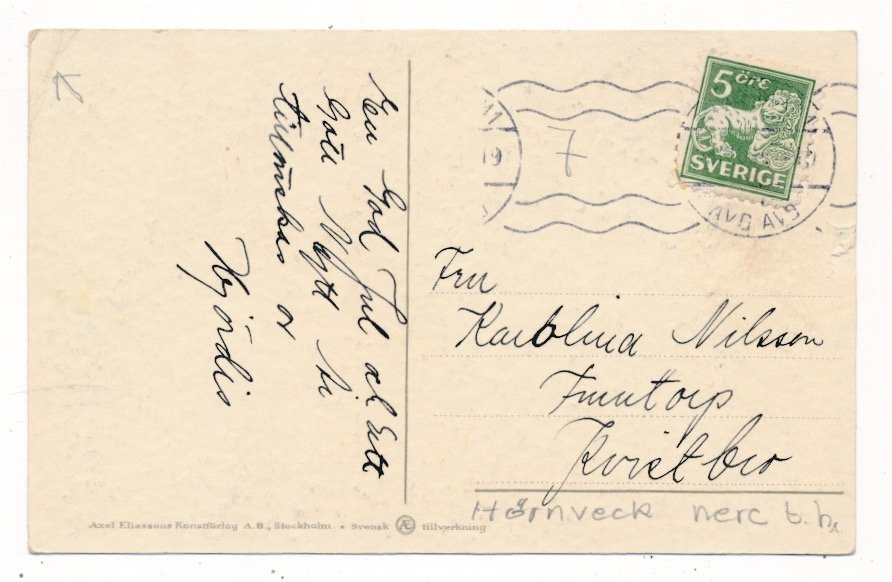 En God Jul och Ett
Gott Nytt År
tillönskas av
Hjördis
5 ÖRE
SVERIGE
19
AVG AVG
7
Fru
Karolina Nilsson
Kvistbro
Hörnveck nere t.h.
Axel Eliassons Konstförlag A.B., Stockholm • Svensk Æ tillverkning